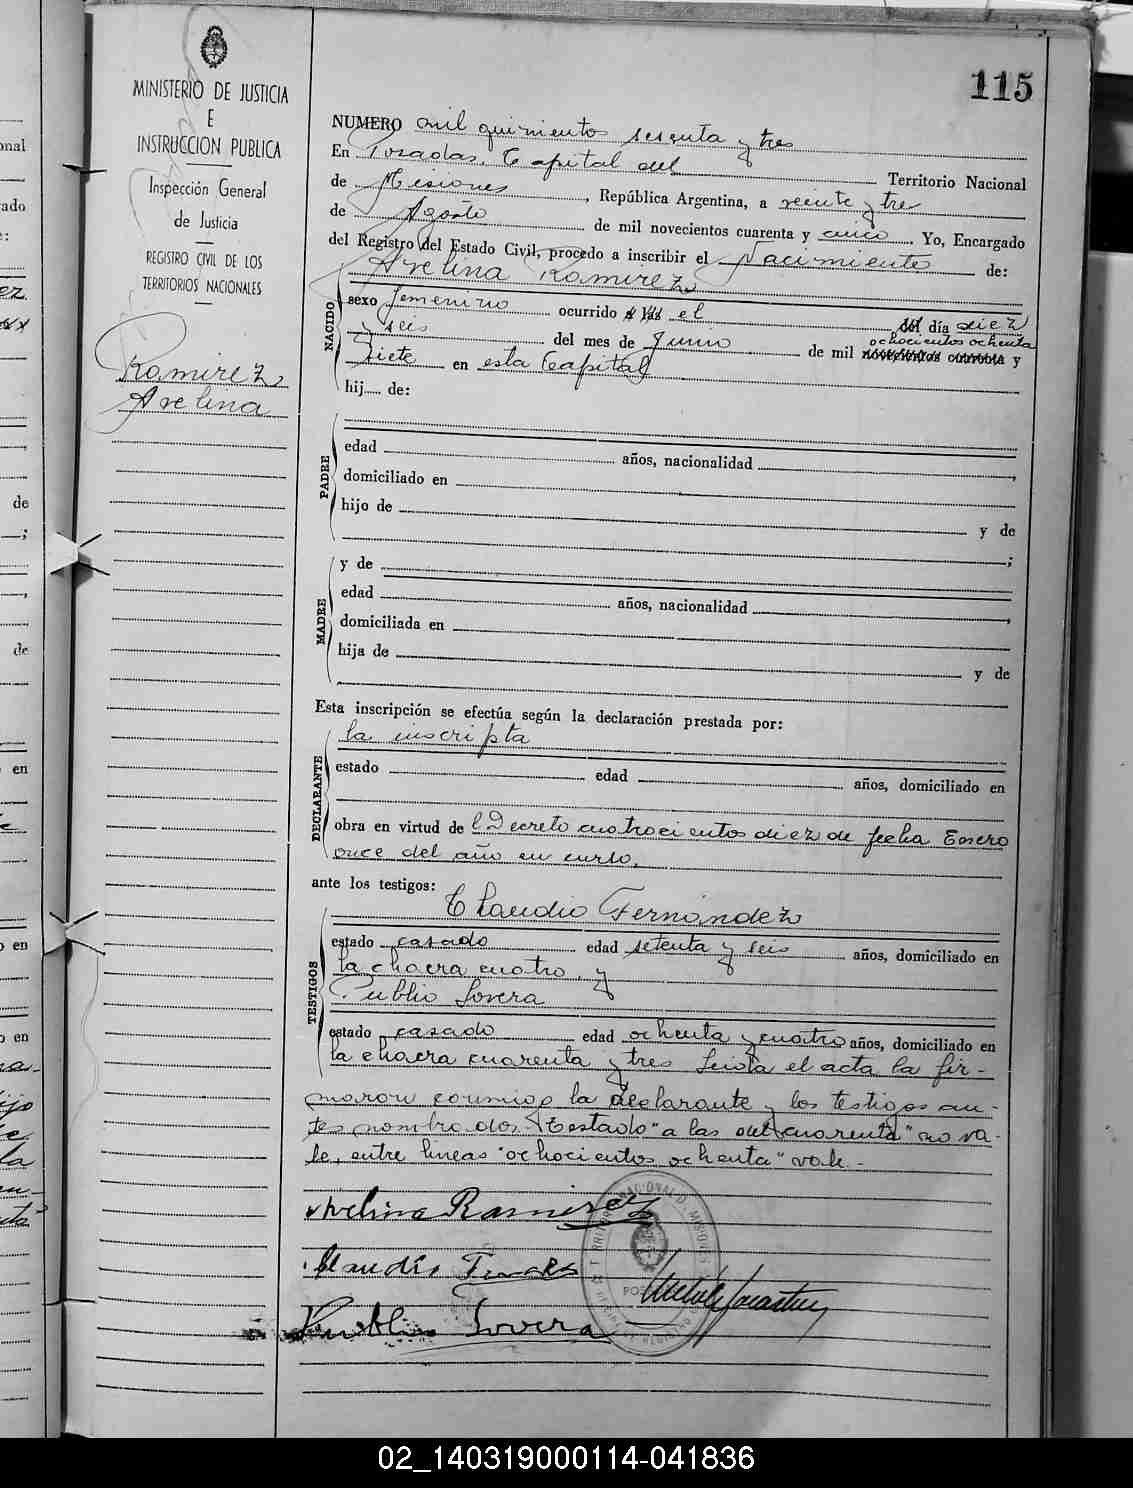 115
MINISTERIO DE JUSTICIA
E
INSTRUCCION PUBLICA
Inspección General
de Justicia
REGISTRO CIVIL DE LOS
TERRITORIOS NACIONALES
Ramirez
Avelina
NUMERO mil quinientos sesenta y tres
En Posadas, Capital del Territorio Nacional
de Misiones, República Argentina, a veinte y tres
de Agosto de mil novecientos cuarenta y cinco. Yo, Encargado
del Registro del Estado Civil, procedo a inscribir el Nacimiento de:
Avelina Ramirez
NACIDO
sexo femenino ocurrido el del día diez
y seis del mes de Junio de mil novecientos cuarenta y
ochocientos ochenta
siete en esta Capital
hij de:
PADRE
edad años, nacionalidad ,
domiciliado en
hijo de y de
;
MADRE
y de
edad años, nacionalidad ,
domiciliada en
hija de y de
Esta inscripción se efectúa según la declaración prestada por:
la inscripta
DECLARANTE
estado edad años, domiciliado en
obra en virtud de l Decreto cuatrocientos diez de fecha Enero
once del año en curso.
ante los testigos:
Claudio Fernández
TESTIGOS
estado casado edad setenta y seis años, domiciliado en
la chacra cuatro, y
Publio Sovera
estado casado edad ochenta y cuatro años, domiciliado en
la chacra cuarenta y tres Leida el acta la fir-
maron conmigo la declarante y los testigos an-
tes nombrados. Testado "a las del cuarenta" no va-
le, entre lineas "ochocientos ochenta" vale.-
Avelina Ramirez
Publio Sovera
02_140319000114-041836